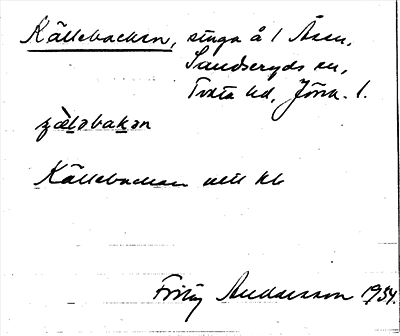 Källebacken, stuga å 1 Åsen,
Sandseryds sn,
Tveta hd, Jönk. l.
Källebacken
Fritz Andersson 1934.